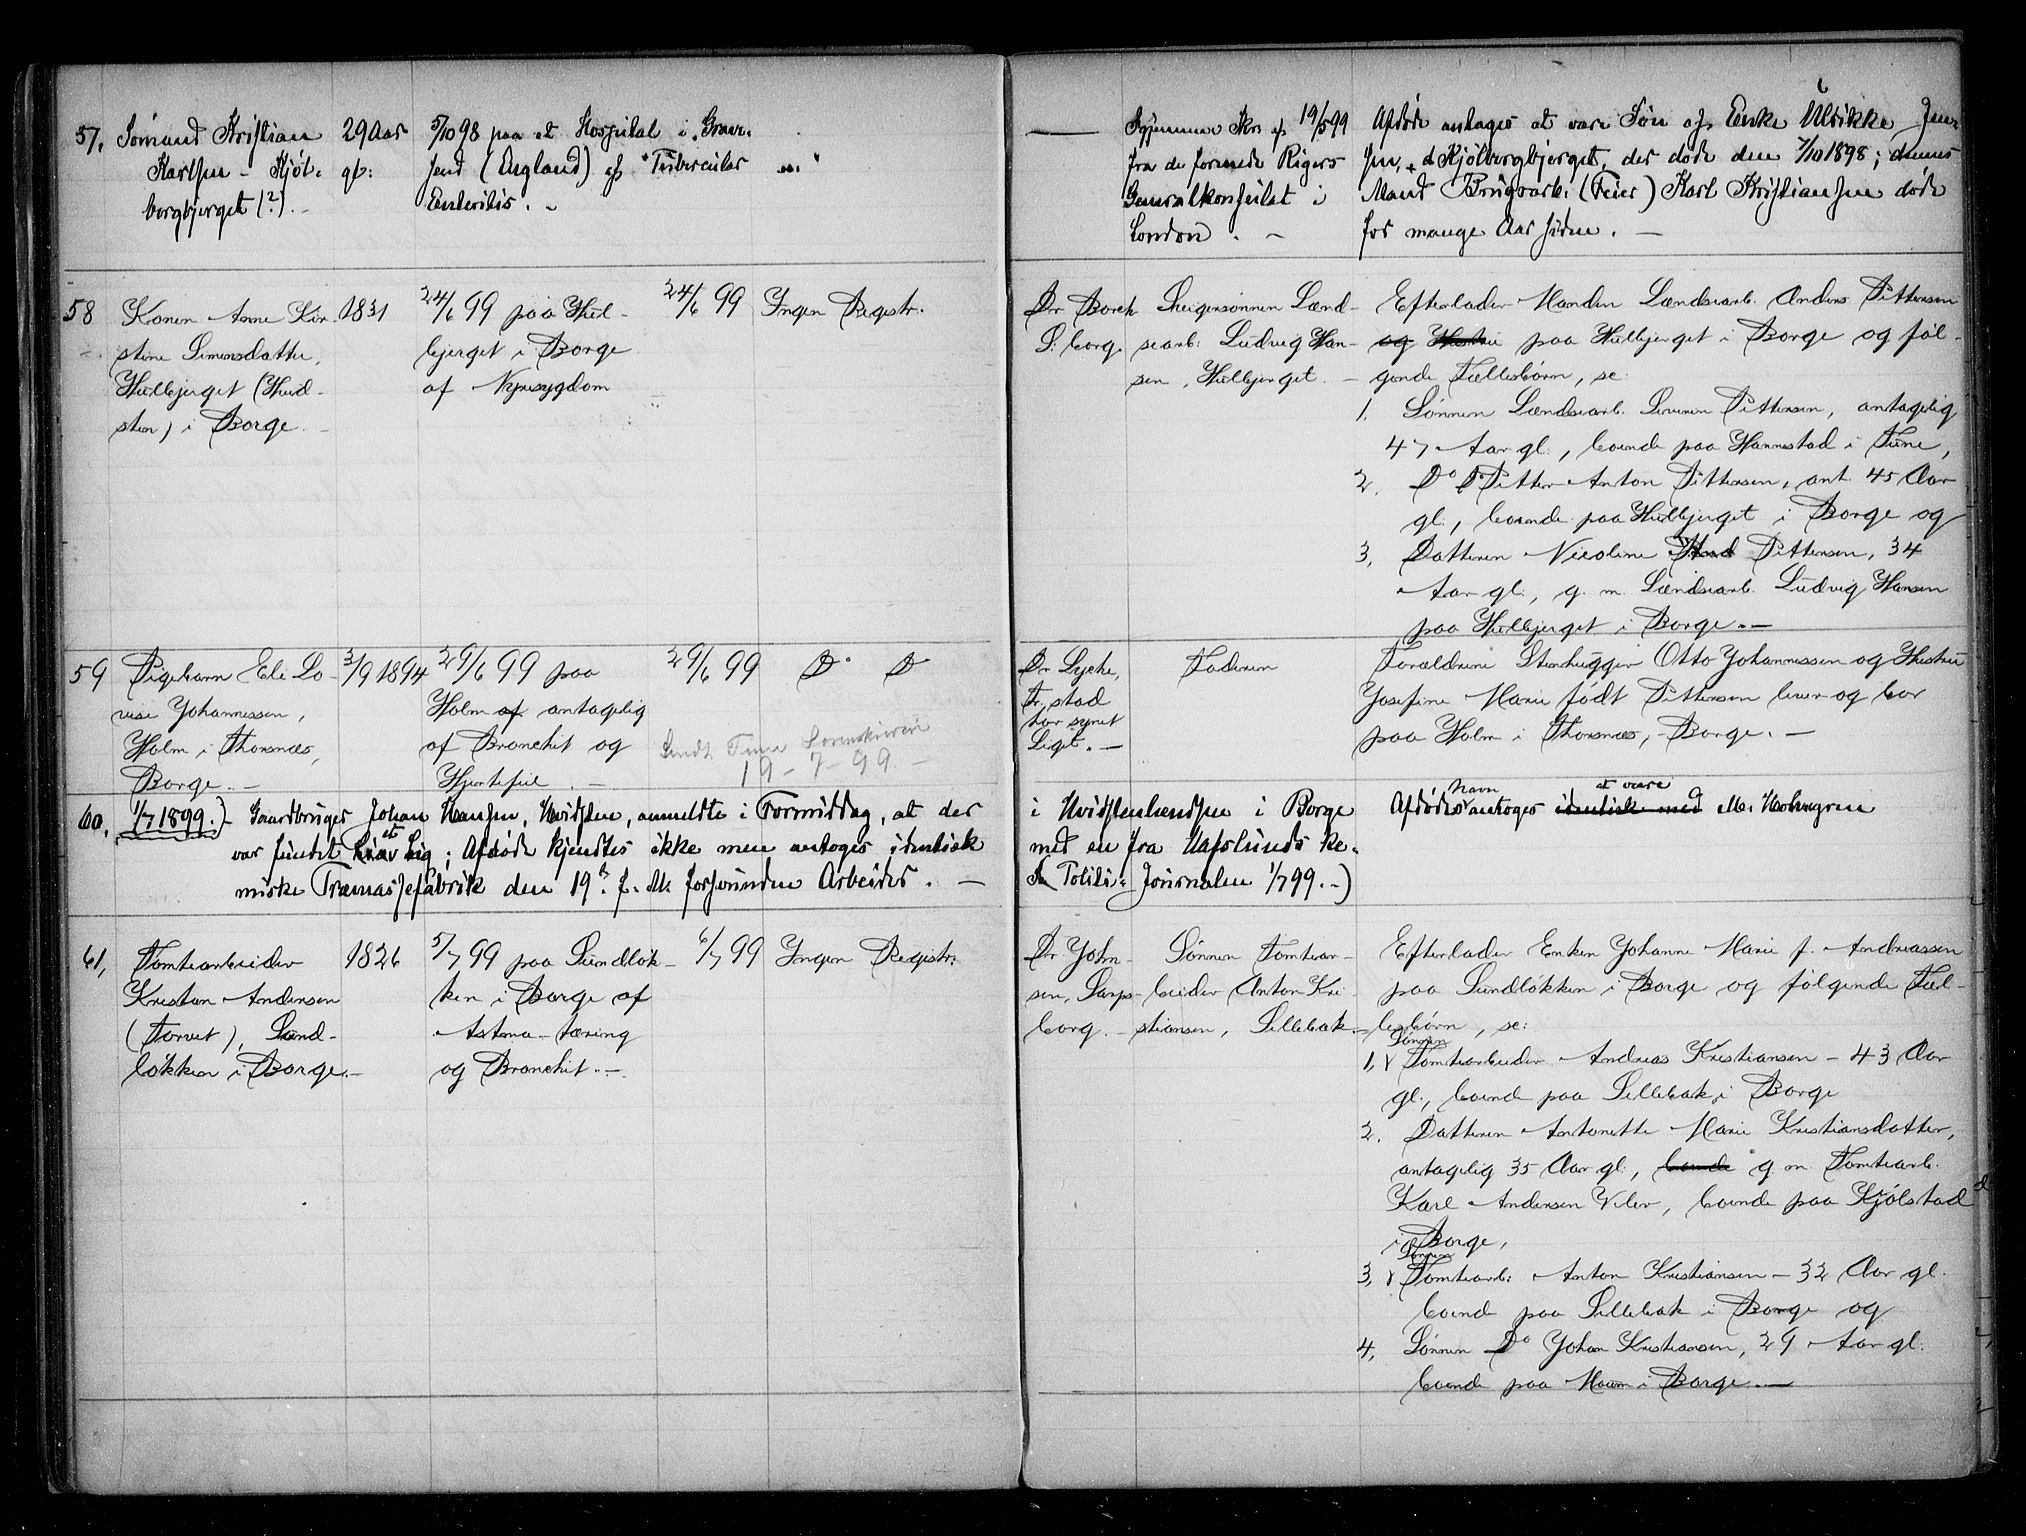 57. Sømand Kristian
Karlsen - Kjøl-
bergbjerget (?). -
29 Aar
gl:
5/10 98 paa et Hospital i "Grave-
send (England) af "Tubercular
Enteritis. -
Igjennem Skr af 19/5 99
fra de forenede Rigers
Generalkonsulat i
London. -
Afdøde antages at være Søn af Enke Ulrikke Jen-
sen, Kjølbergbjerget, der døde den 7/10 1898; dennes
Mand Brugsarb: (Feier) Karl Kristiansen døde
for mange Aar siden. -
58
Konen Anne Kir-
stine Simensdatter,
Hulbjerget (Hvid-
sten) i Borge. -
1831
24/6 99 paa Hul-
bjerget i Borge
af Nyresygdom
24/6 99
Ingen Registr.
Dr Borch
S:borg.
Svigersønnen Lænd-
searb: Ludvig Han-
sen, Hulbjerget. -
Efterlader Manden Lændsearb. Anders Pettersen
og Hustru paa Hulbjerget i Borge og føl-
gende Fællesbørn, se:
1. Sønnen Lændsearb. Severin Pettersen, antagelig
47 Aar gl., boende paa Hannestad i Tune,
2. Do Petter Anton Pettersen, ant. 45 Aar
gl., boende paa Hulbjerget i Borge og
3, Datteren Nicoline Pettersen, 34
Aar gl., g. m. Lændsearb. Ludvig Hansen
paa Hulbjerget i Borge. -
59
Pigebarn Eli Lo-
vise Johannessen,
Holm i Thorsnæs,
Borge. -
3/9 1894
29/6 99 paa
Holm af antagelig
af Bronchit og
Hjertefeil. -
29/6 99
Do Do
Sendt Tune Sorenskriveri
19-7-99. -
Dr Lycke,
Fr.stad
har synet
Liget. -
Faderen
Forældrene Stenhugger Otto Johannessen og Hustru
Josefine Marie født Pettersen lever og bor
paa Holm i Thorsnæs, Borge. -
60, 1/7 1899.) Gaardbruger Johan Hansen, Hvidsten, anmeldte i Formiddag, at der i Hvidstenlændsen i Borge
var fundet et Lig; Afdøde kjendtes ikke men antoges identisk med en fra Hafslunds ke-
miske Træmassefabrik den 19de f. M. forsvunden Arbeider. - Politi-Journalen 1/7 99. -)
Navn at være
Afdødes antoges identisk med M. Holmgren
61,
Tomtearbeider
Kristian Andersen
(Torvet), Sund-
løkken i Borge. -
1826
5/7 99 paa Sundløk-
ken i Borge af
Astma-tæring
og Bronchit. -
6/7 99
Ingen Registr.
Dr John-
sen, Sarps-
borg. -
Sønnen Tomtear-
beider Anton Kri-
stiansen, Sellebak. -
Efterlader Enken Johanne Marie f. Andreassen
paa Sundløkken i Borge og følgende Fæl-
lesbørn, se:
Sønnen
1, Tomtearbeider Andreas Kristiansen - 43 Aar
gl., boende paa Sellebak i Borge
2. Datteren Antonette Marie Kristiansdatter,
antagelig 35 Aar gl., boende g. m. Tomtearb.
Karl Andersen Viker, boende paa Kjølstad
i Borge,
Sønnen
3, Tomtearb: Anton Kristiansen - 32 Aar gl.
boende paa Sellebak i Borge og
4, Sønnen Do Johan Kristiansen, 29 Aar gl.
boende paa Moum i Borge. -